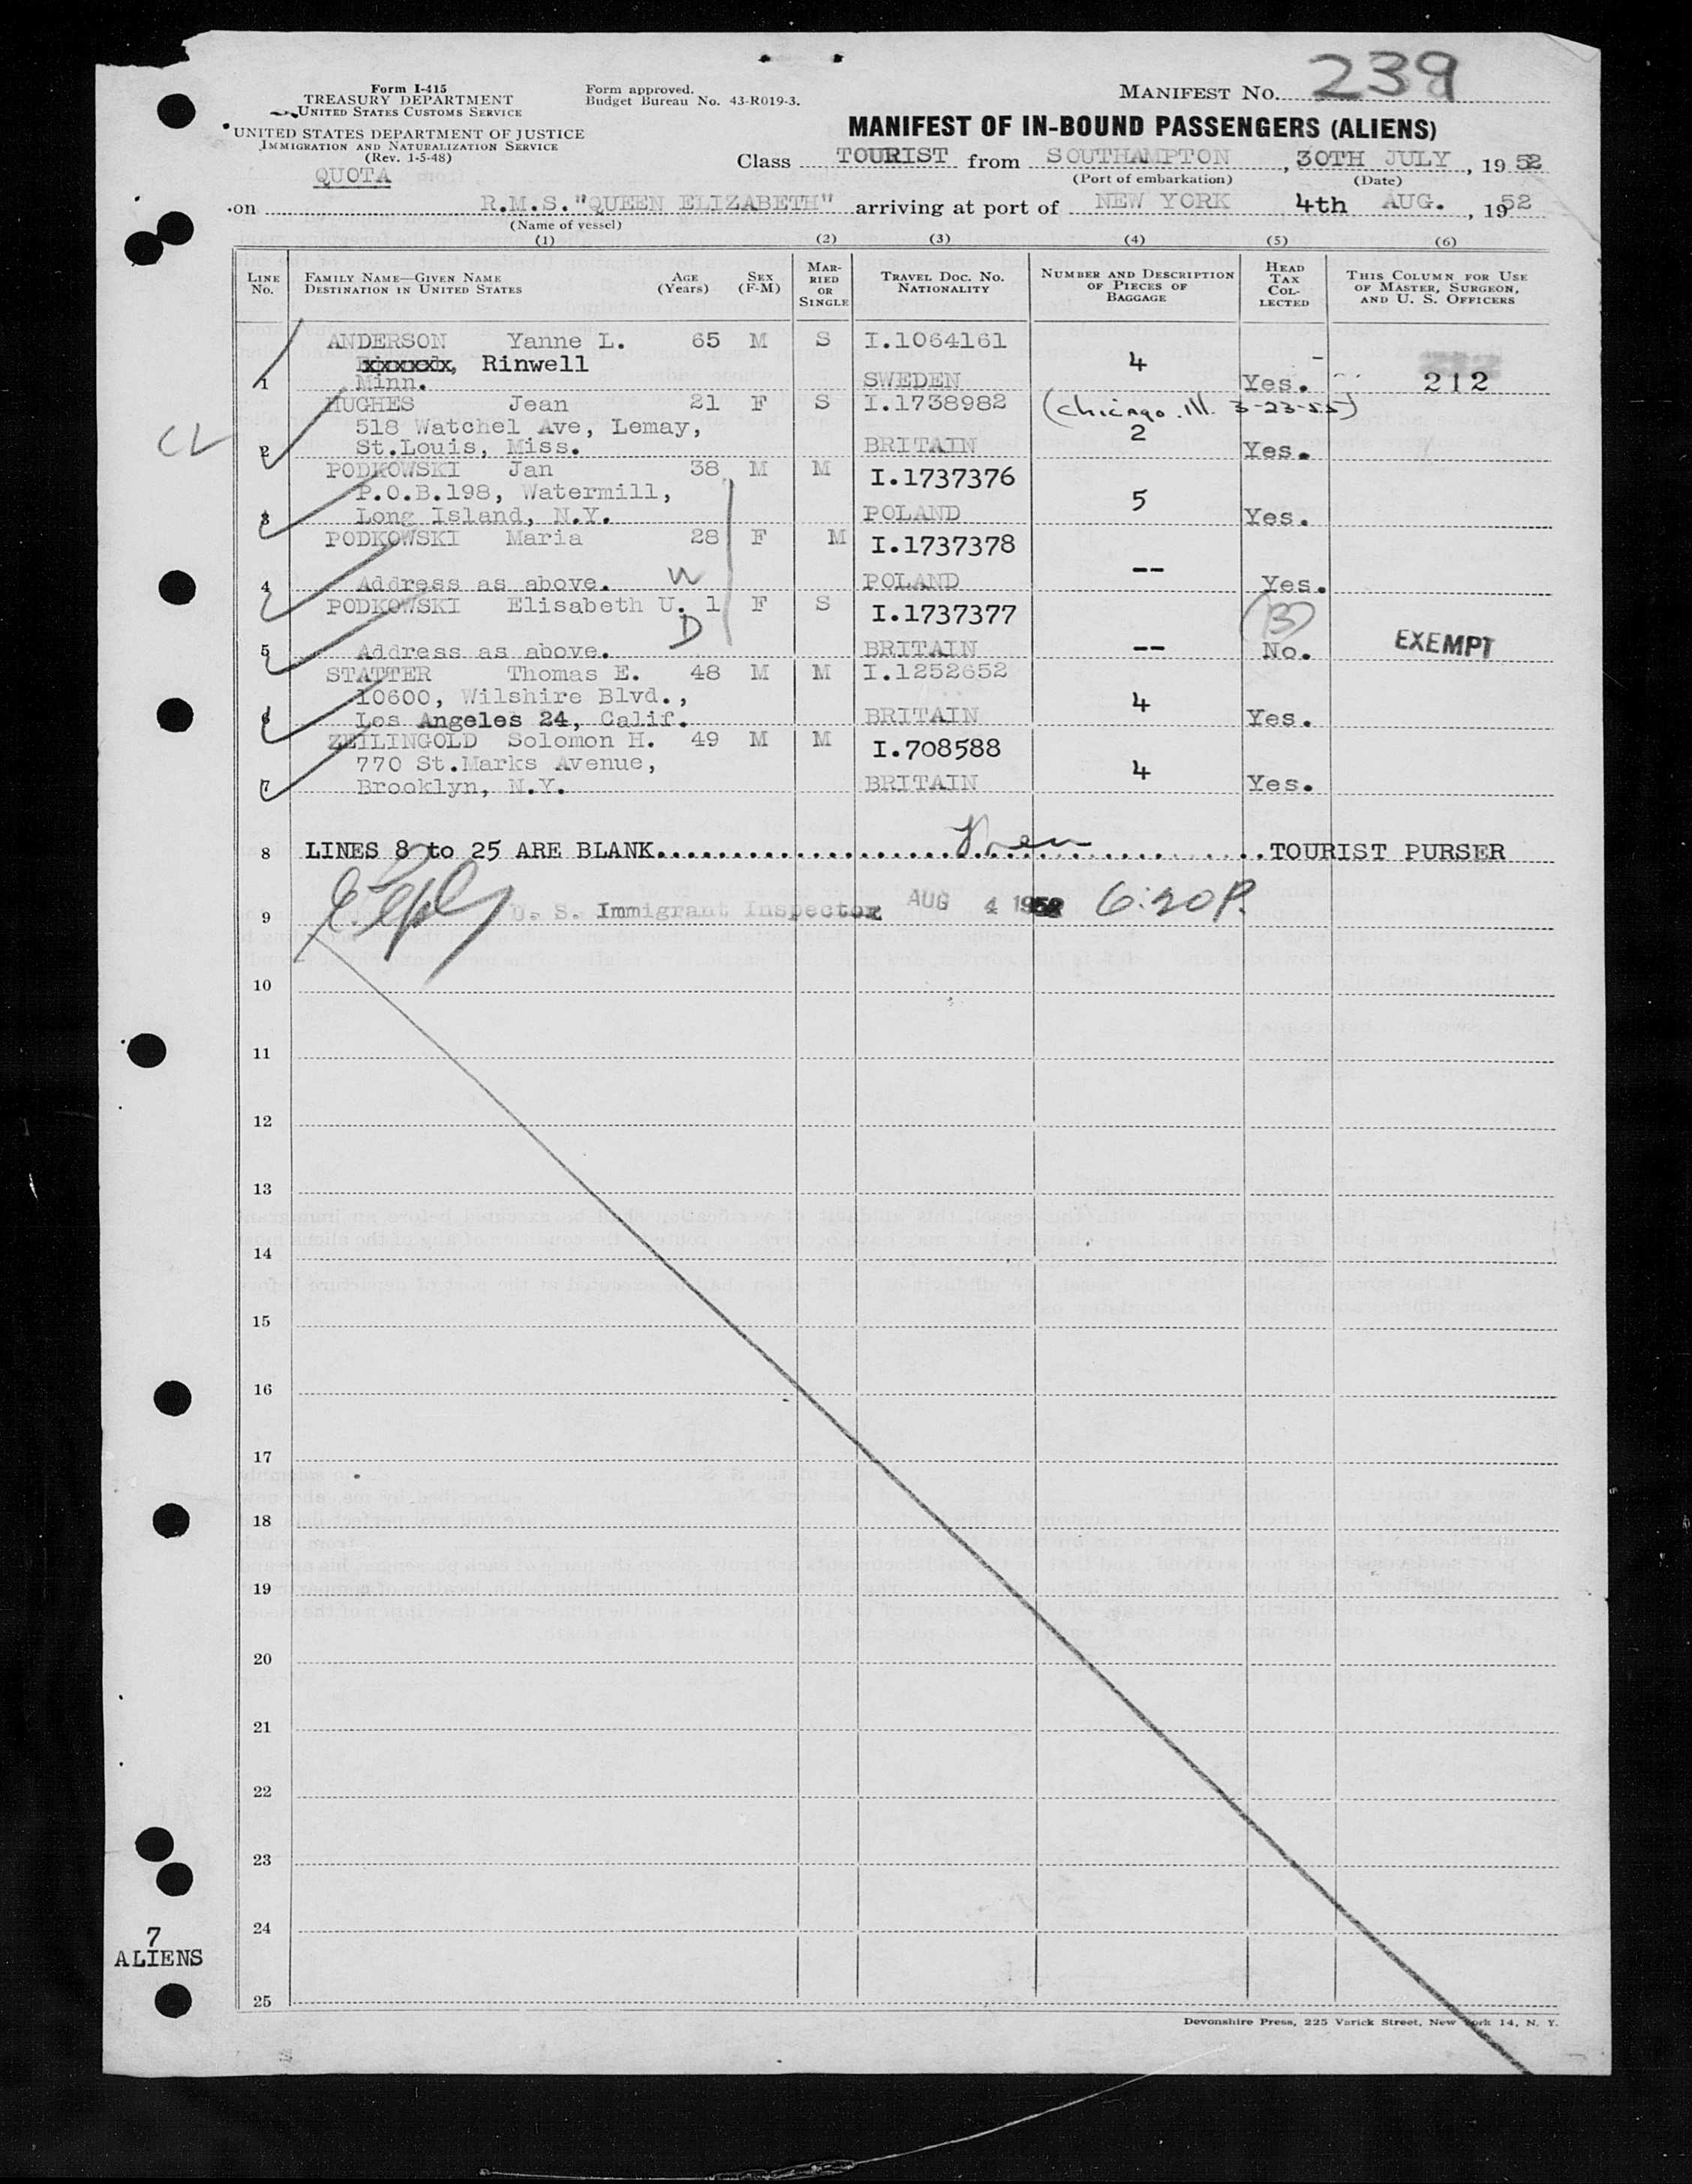 Form I-415
TREASURY DEPARTMENT
UNITED STATES CUSTOMS SERVICE
UNITED STATES DEPARTMENT OF JUSTICE
IMMIGRATION AND NATURALIZATION SERVICE
(Rev. 1-5-48)
QUOTA
Form approved.
Budget Bureau No. 43-R019-3.
MANIFEST No. 239
MANIFEST OF IN-BOUND PASSENGERS (ALIENS)
Class TOURIST from SOUTHAMPTON, 30TH JULY, 1952
(Port of embarkation) (Date)
on R.M.S."QUEEN ELIZABETH" arriving at port of NEW YORK 4th AUG., 1952
(Name of vessel)
(1) (2) (3) (4) (5) (6)
LINE No. FAMILY NAME—GIVEN NAME DESTINATION IN UNITED STATES AGE (Years) SEX (F-M) MARRIED OR SINGLE TRAVEL DOC. NO. NATIONALITY NUMBER AND DESCRIPTION OF PIECES OF BAGGAGE HEAD TAX COLLECTED THIS COLUMN FOR USE OF MASTER, SURGEON, AND U. S. OFFICERS
ANDERSON Yanne L. 65 M S I.1064161
xxxxxxx, Rinwell 4 -
1 Minn. SWEDEN Yes. 212
HUGHES Jean 21 F S I.1738982 (Chicago. Ill. 3-23-55)
518 Watchel Ave, Lemay, 2
2 St.Louis, Miss. BRITAIN Yes.
PODKOWSKI Jan 38 M M I.1737376
P.O.B.198, Watermill, 5
3 Long Island, N.Y. POLAND Yes.
PODKOWSKI Maria 28 F M I.1737378
4 Address as above. W POLAND -- Yes.
PODKOWSKI Elisabeth U. 1 F S I.1737377 (13)
D
5 Address as above. BRITAIN -- No. EXEMPT
STATTER Thomas E. 48 M M I.1252652
10600, Wilshire Blvd., 4
6 Los Angeles 24, Calif. BRITAIN Yes.
ZEILINGOLD Solomon H. 49 M M I.708588
770 St.Marks Avenue, 4
7 Brooklyn, N.Y. BRITAIN Yes.
8 LINES 8 to 25 ARE BLANK TOURIST PURSER
9 U. S. Immigrant Inspector AUG 4 1952 6:20P.
10
11
12
13
14
15
16
17
18
19
20
21
22
23
24
25
7
ALIENS
Devonshire Press, 225 Varick Street, New York 14, N. Y.